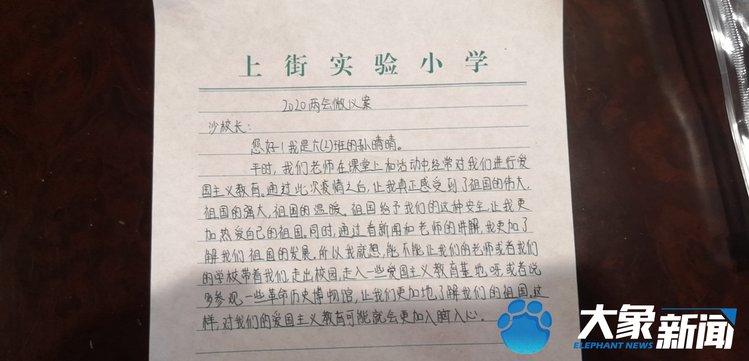 上街实验小学
2020两会微议案
沙校长：
您好！我是六（2）班的孙晴晴。
平时，我们老师在课堂上和活动中经常对我们进行爱
国主义教育。通过此次疫情之后，让我真正感受到了祖国的伟大，
祖国的强大，祖国的温暖。祖国给予我们的这种安全，让我更
加热爱自己的祖国。同时，通过看新闻和老师的讲解，我更加了
解我们祖国的发展，所以我就想，能不能让我们的老师或者我们
的学校带着我们，走出校园，走入一些爱国主义教育基地呀，或者说
多参观一些革命历史博物馆，让我们更加地了解我们的祖国，这
样，对我们的爱国主义教育可能就会更加入脑入心。
大象新闻
ELEPHANT NEWS